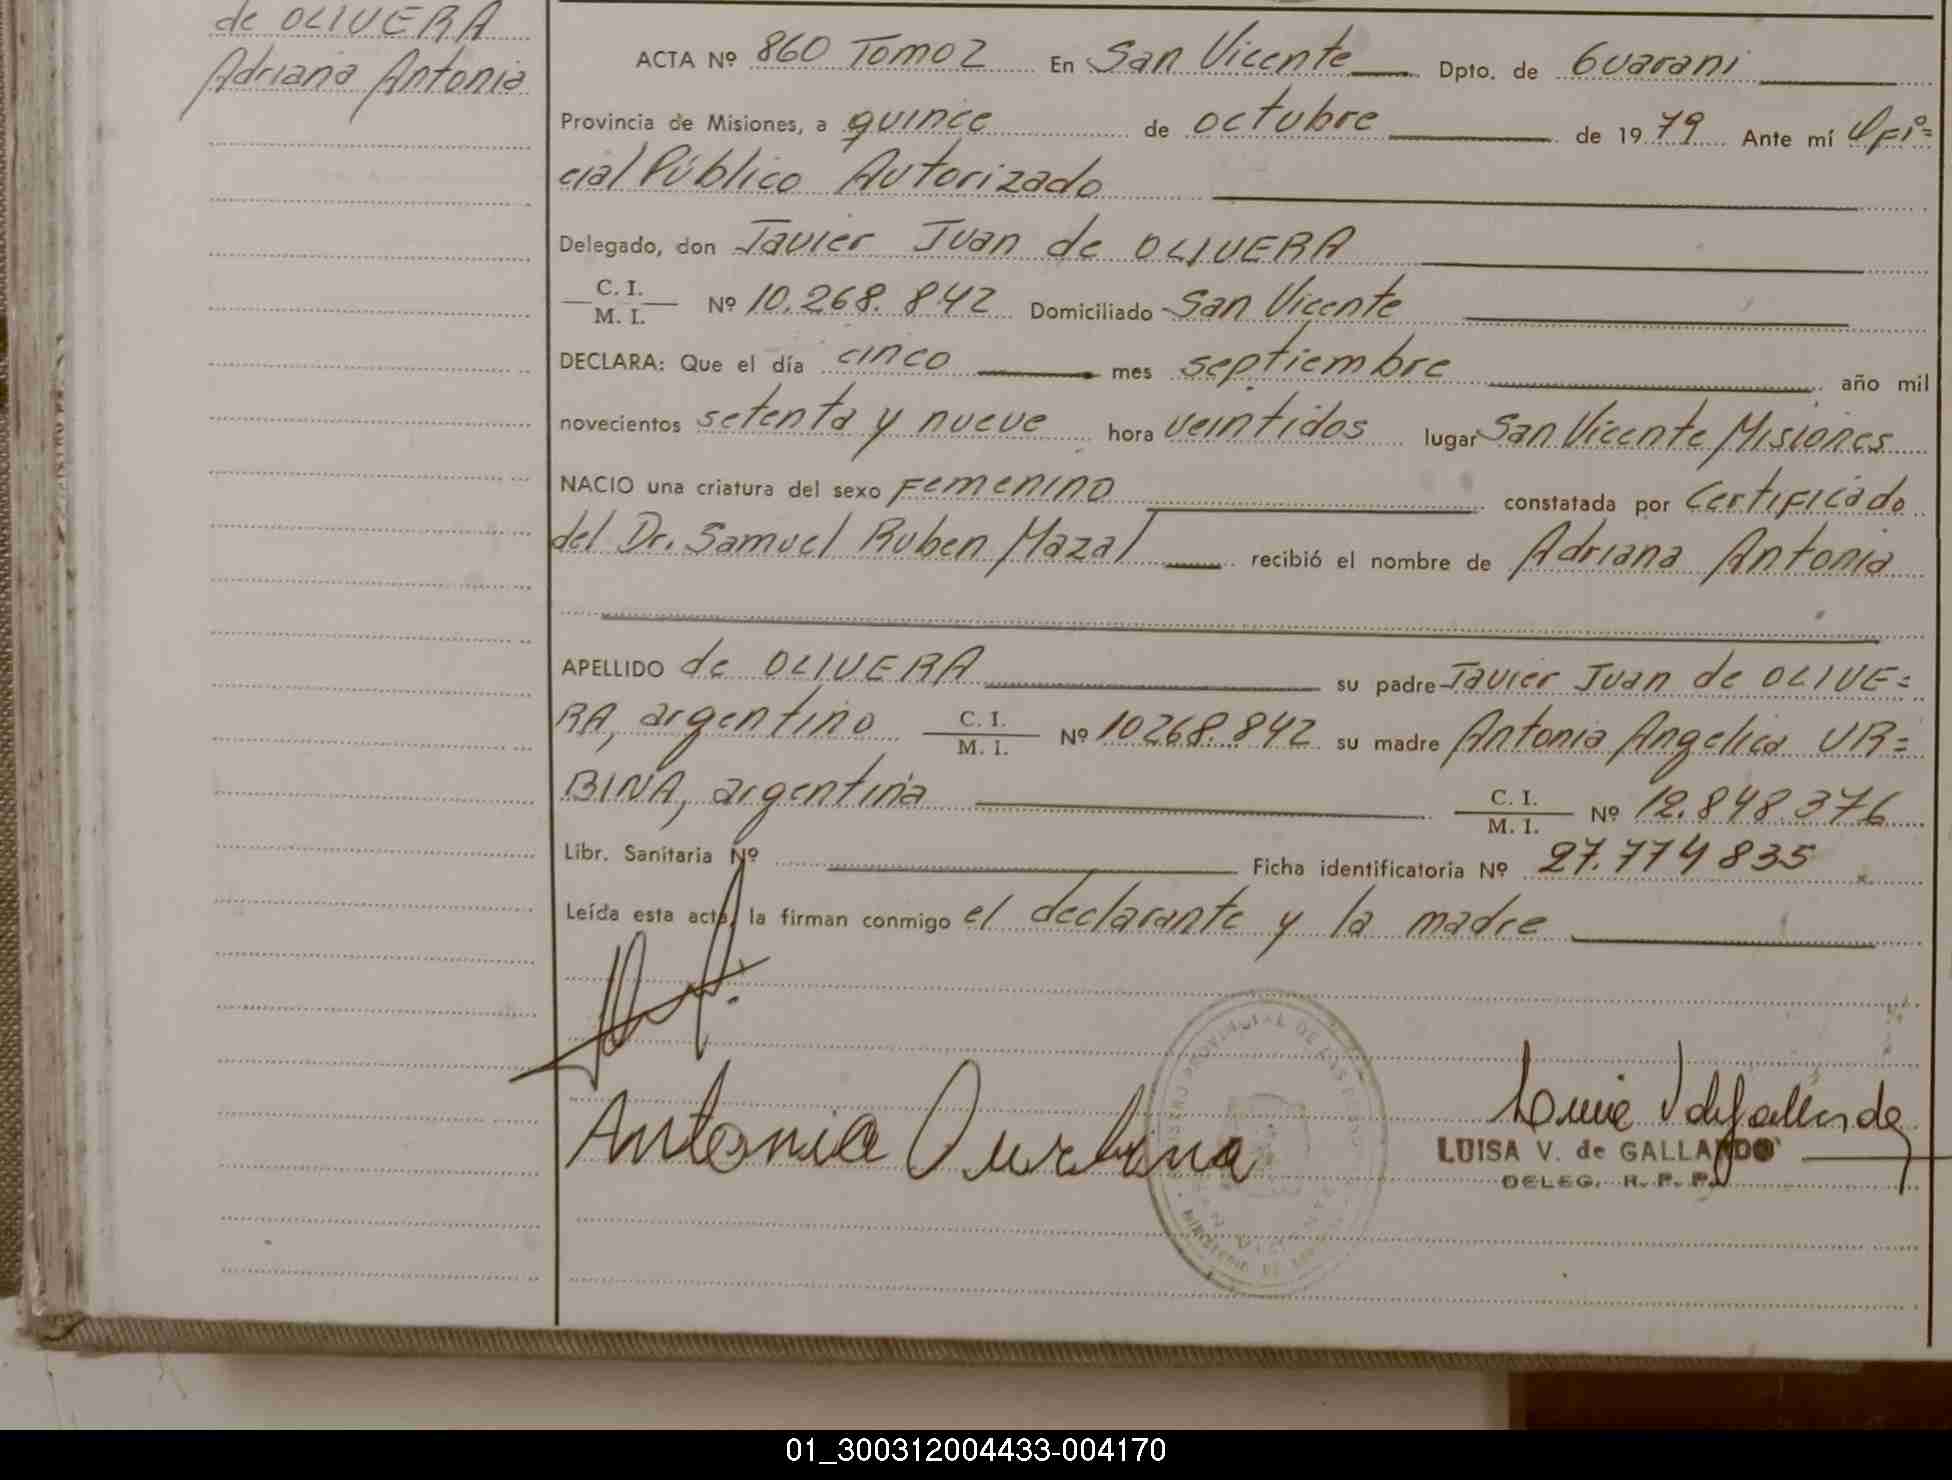 de OLIVERA
Adriana Antonia
ACTA Nº 860 Tomo 2 En San Vicente Dpto. de Guarani
Provincia de Misiones, a quince de octubre de 1979 Ante mí Ofi=
cial Público Autorizado
Delegado, don Javier Juan de OLIVERA
C. I.
M. I. Nº 10.268.842 Domiciliado San Vicente
DECLARA: Que el día cinco mes septiembre año mil
novecientos setenta y nueve hora veintidos lugar San Vicente Misiones
NACIO una criatura del sexo Femenino constatada por Certificado
del Dr. Samuel Ruben Mazal recibió el nombre de Adriana Antonia
APELLIDO de OLIVERA su padre Javier Juan de OLIVE=
RA, argentino C. I. M. I. Nº 10268.842 su madre Antonia Angelica UR=
BINA, argentina C. I. M. I. Nº 12.848.376
Libr. Sanitaria Nº Ficha identificatoria Nº 27.774835
Leída esta acta, la firman conmigo el declarante y la madre
Antonia Ourbina
LUISA V. de GALLARDO
DELEG. R. P. P.
01_300312004433-004170